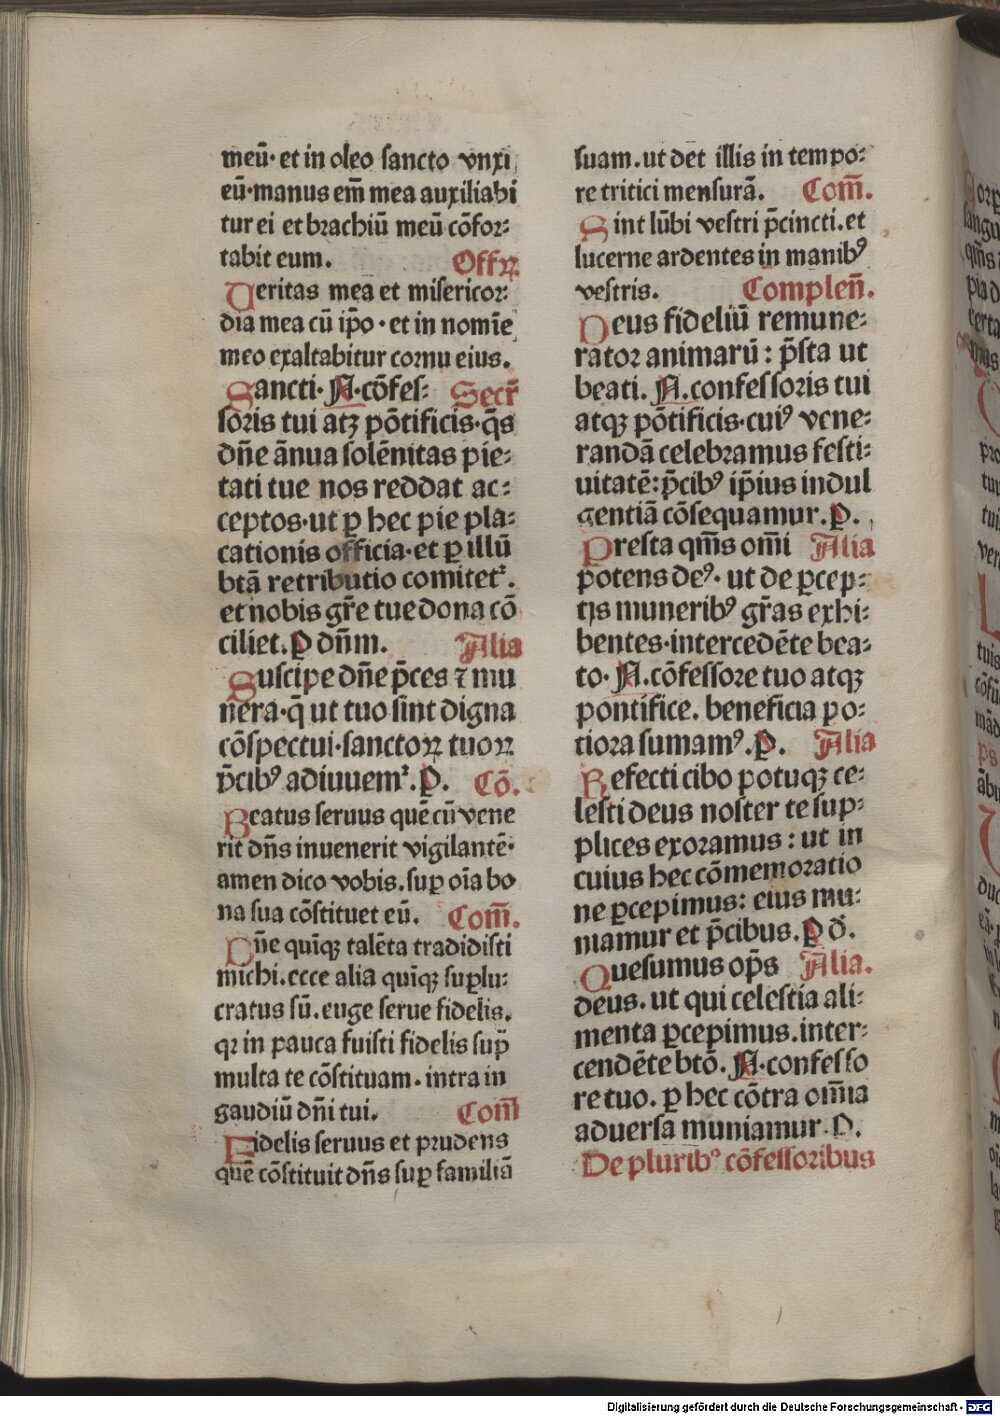 meū· et in oleo sancto vnxi
eū·manus em̄ mea auxiliabi
tur ei et brachiū meū cōfor⸗
tabit eum. Offꝝ.
Ueritas mea et misericor⸗
dia mea cū ip̄o·et in nomīe
meo exaltabitur cornu eius.
Sancti· N·cōfes⸗ Secr̄
soris tui atꝫ pōtificis·q̄s
dn̄e ānua solēnitas pie⸗
tati tue nos reddat ac⸗
ceptos·ut ꝑ hec pie pla⸗
cationis officia·et ꝑ illū
btā retributio comitetᷣ.
et nobis gr̄e tue dona cō
ciliet. P dn̄m. Alia
Suscipe dn̄e p̄ces ⁊ mu
nera·q̄ ut tuo sint digna
cōspectui·sanctoꝝ tuoꝝ
p̄cibꝰ adiuuemᷣ. P. Cō.
Beatus seruus quē cū vene
rit dn̄s inuenerit vigilantē·
amen dico vobis. suꝑ oīa bo
na sua cōstituet eū. Com̄.
Dn̄e quīqꝫ talēta tradidisti
michi. ecce alia quīqꝫ suꝑlu⸗
cratus sū. euge serue fidelis.
qꝛ in pauca fuisti fidelis sup̄
multa te cōstituam. intra in
gaudiū dn̄i tui. Com̄
Fidelis seruus et prudens
quē cōstituit dn̄s suꝑ familiā
suam. ut det illis in tempo⸗
re tritici mensurā. Com̄.
Sint lūbi vestri p̄cincti. et
lucerne ardentes in manibꝰ
vestris. Complen̄.
Deus fideliū remune⸗
rator animarū: p̄sta ut
beati. N. confessoris tui
atqꝫ pōtificis·cuiꝰ vene⸗
randā celebramus festi⸗
uitatē: p̄cibꝰ ip̄ius indul
gentiā cōsequamur. P.
Presta qm̄s om̄i Alia
potens deꝰ· ut de ꝑcep⸗
tis muneribꝰ gr̄as exhi⸗
bentes·intercedēte bea⸗
to· N. cōfessore tuo atqꝫ
pontifice. beneficia po⸗
tiora sumamꝰ. P. Alia
Refecti cibo potuqꝫ ce⸗
lesti deus noster te sup⸗
plices exoramus: ut in
cuius hec cōmemoratio
ne ꝑcepimus: eius mu⸗
niamur et p̄cibus. P d̄.
Quesumus op̄s Alia.
deus. ut qui celestia ali⸗
menta ꝑcepimus. inter⸗
cendēte btō. N·confesso
re tuo. ꝑ hec cōtra om̄ia
aduersa muniamur. P.
De pluribꝰ cōfessoribus
Digitalisierung gefördert durch die Deutsche Forschungsgemeinschaft - DFG